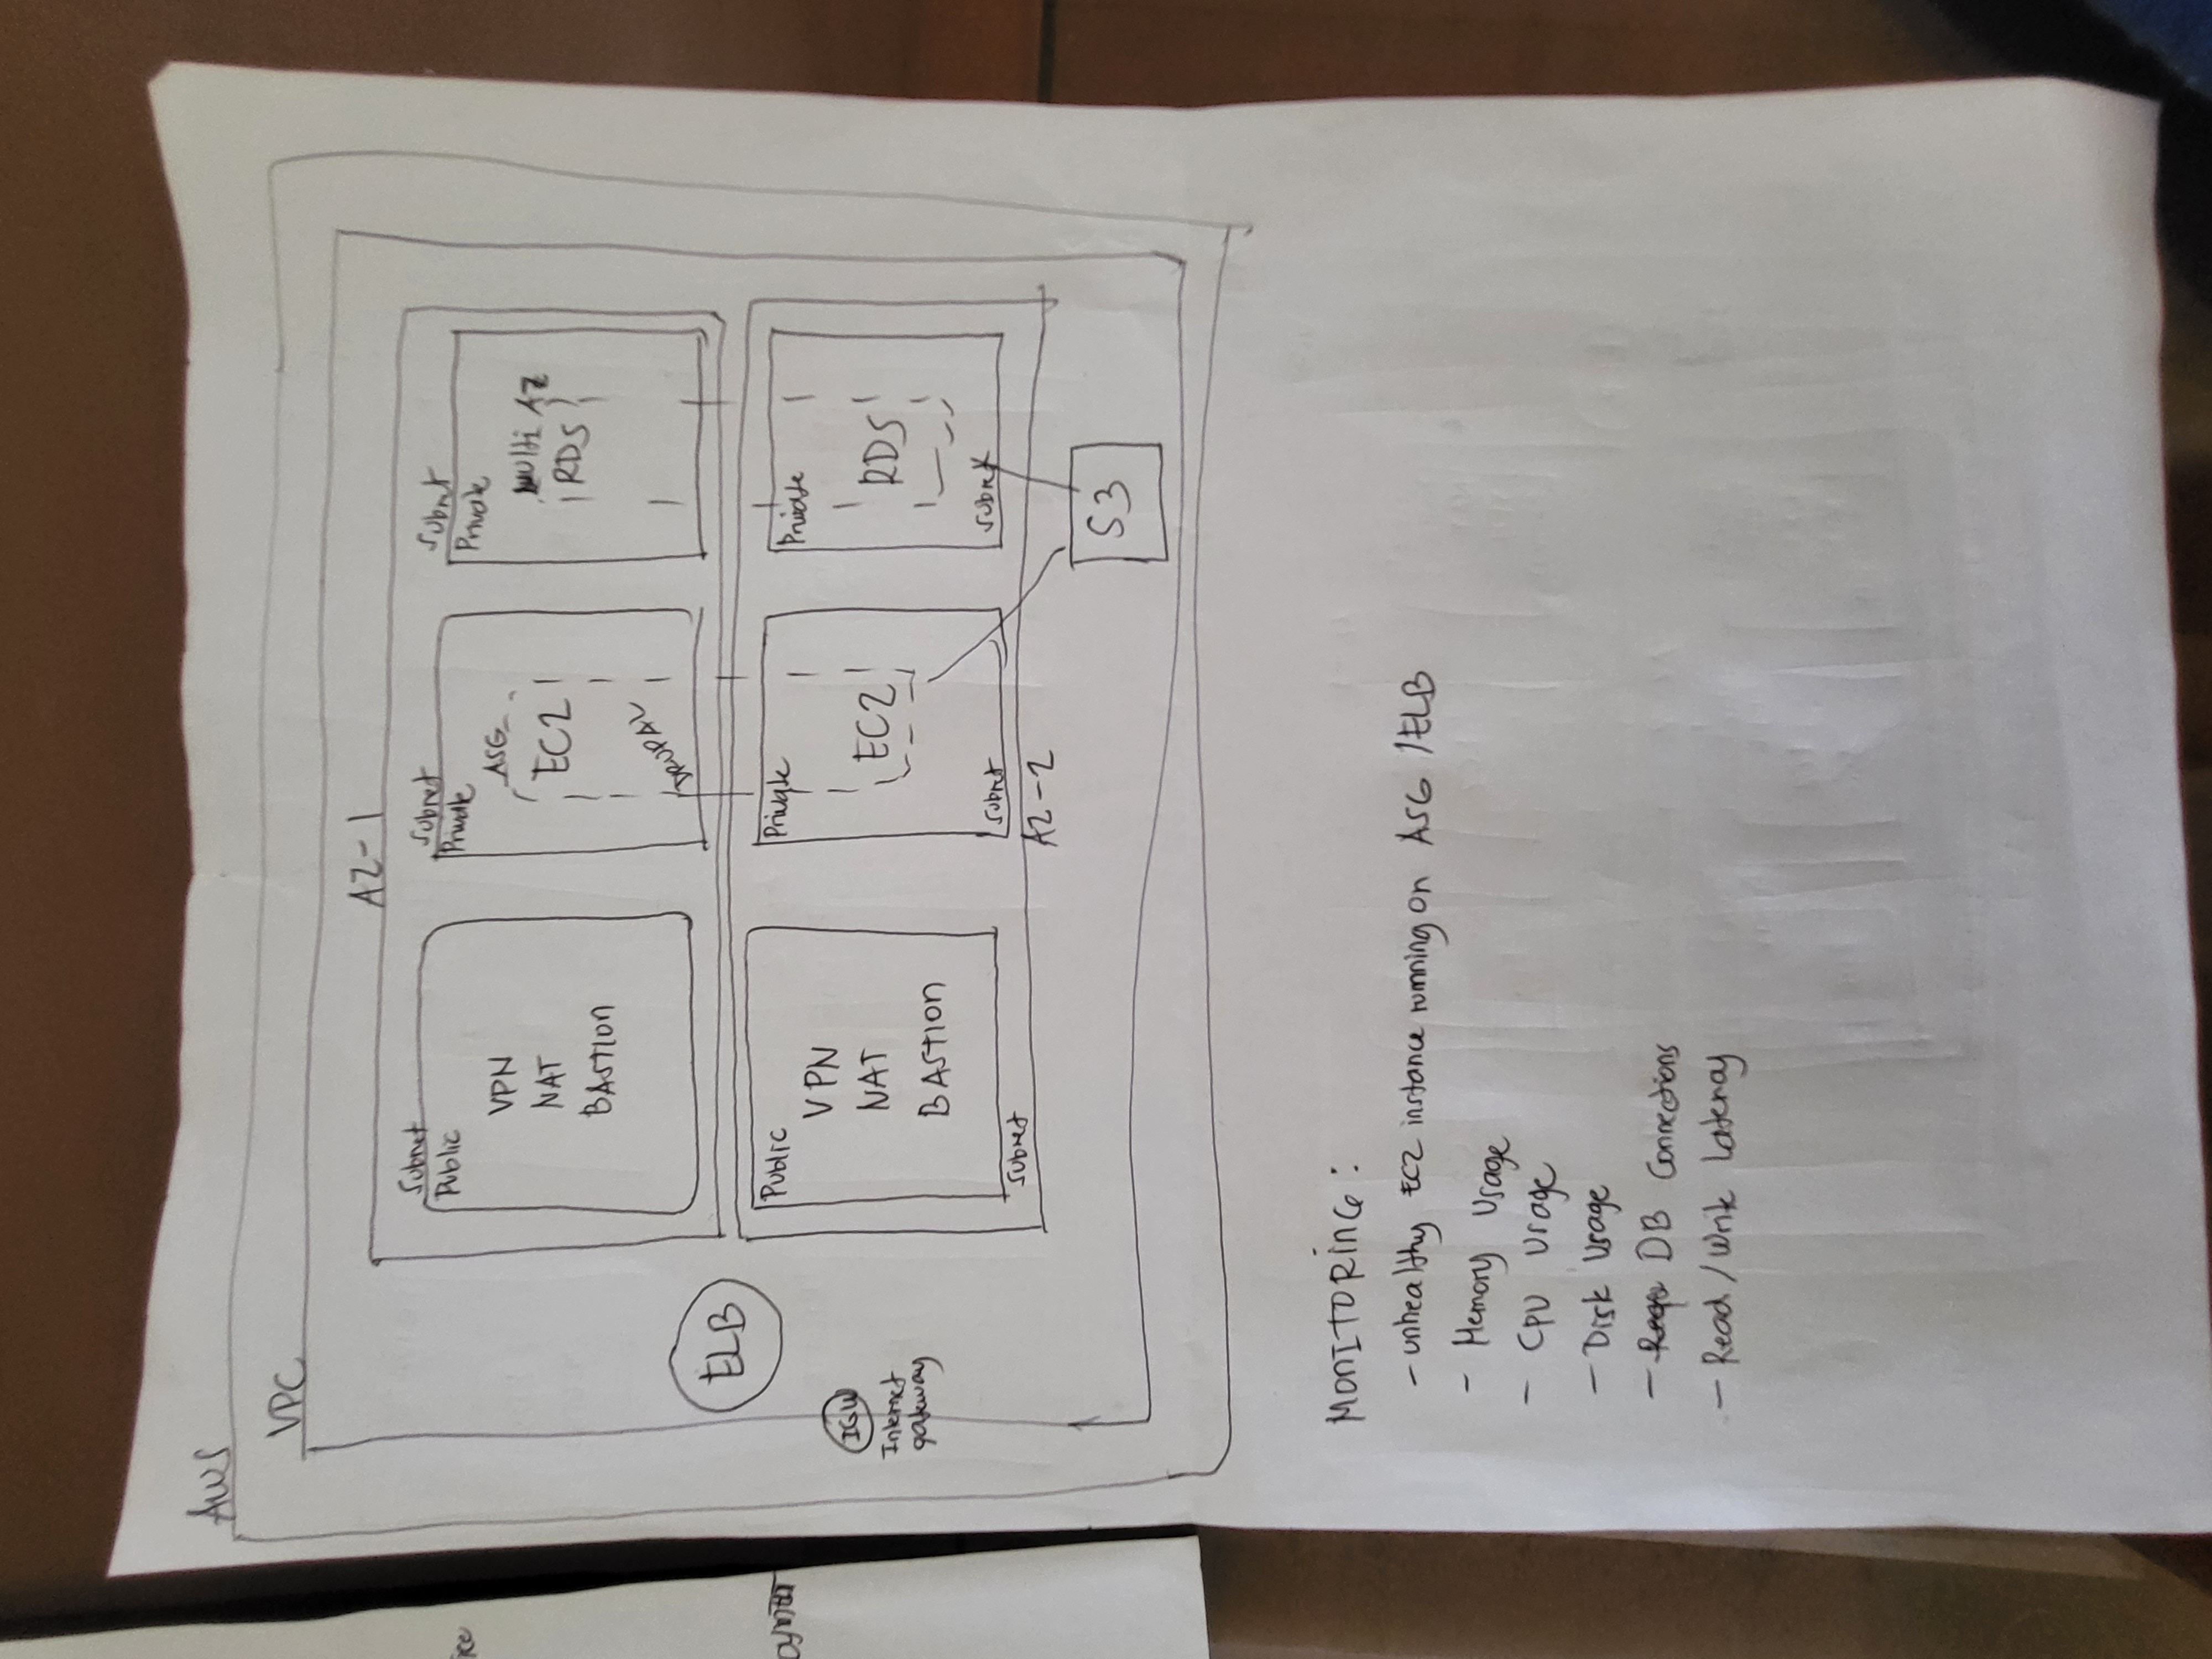 AWS
VPC
AZ-1
Subnet
Public
VPN
NAT
BASTION
Subnet
Private
ASG
EC2
DRUPAL
Subnet
Private
Multi AZ
RDS
ELB
IGW
Internet
gateway
Public
VPN
NAT
BASTION
Subnet
Private
EC2
Subnet
Private
RDS
Subnet
AZ-2
S3
MONITORING:
- unhealthy EC2 instance running on ASG /ELB
- Memory Usage
- CPU Usage
- Disk Usage
- DB Connections
- Read / Write Latency